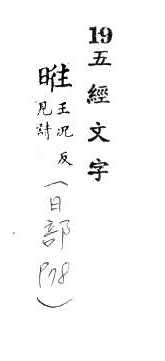 19五經文字
暀王況反
見詩
(日部P78)